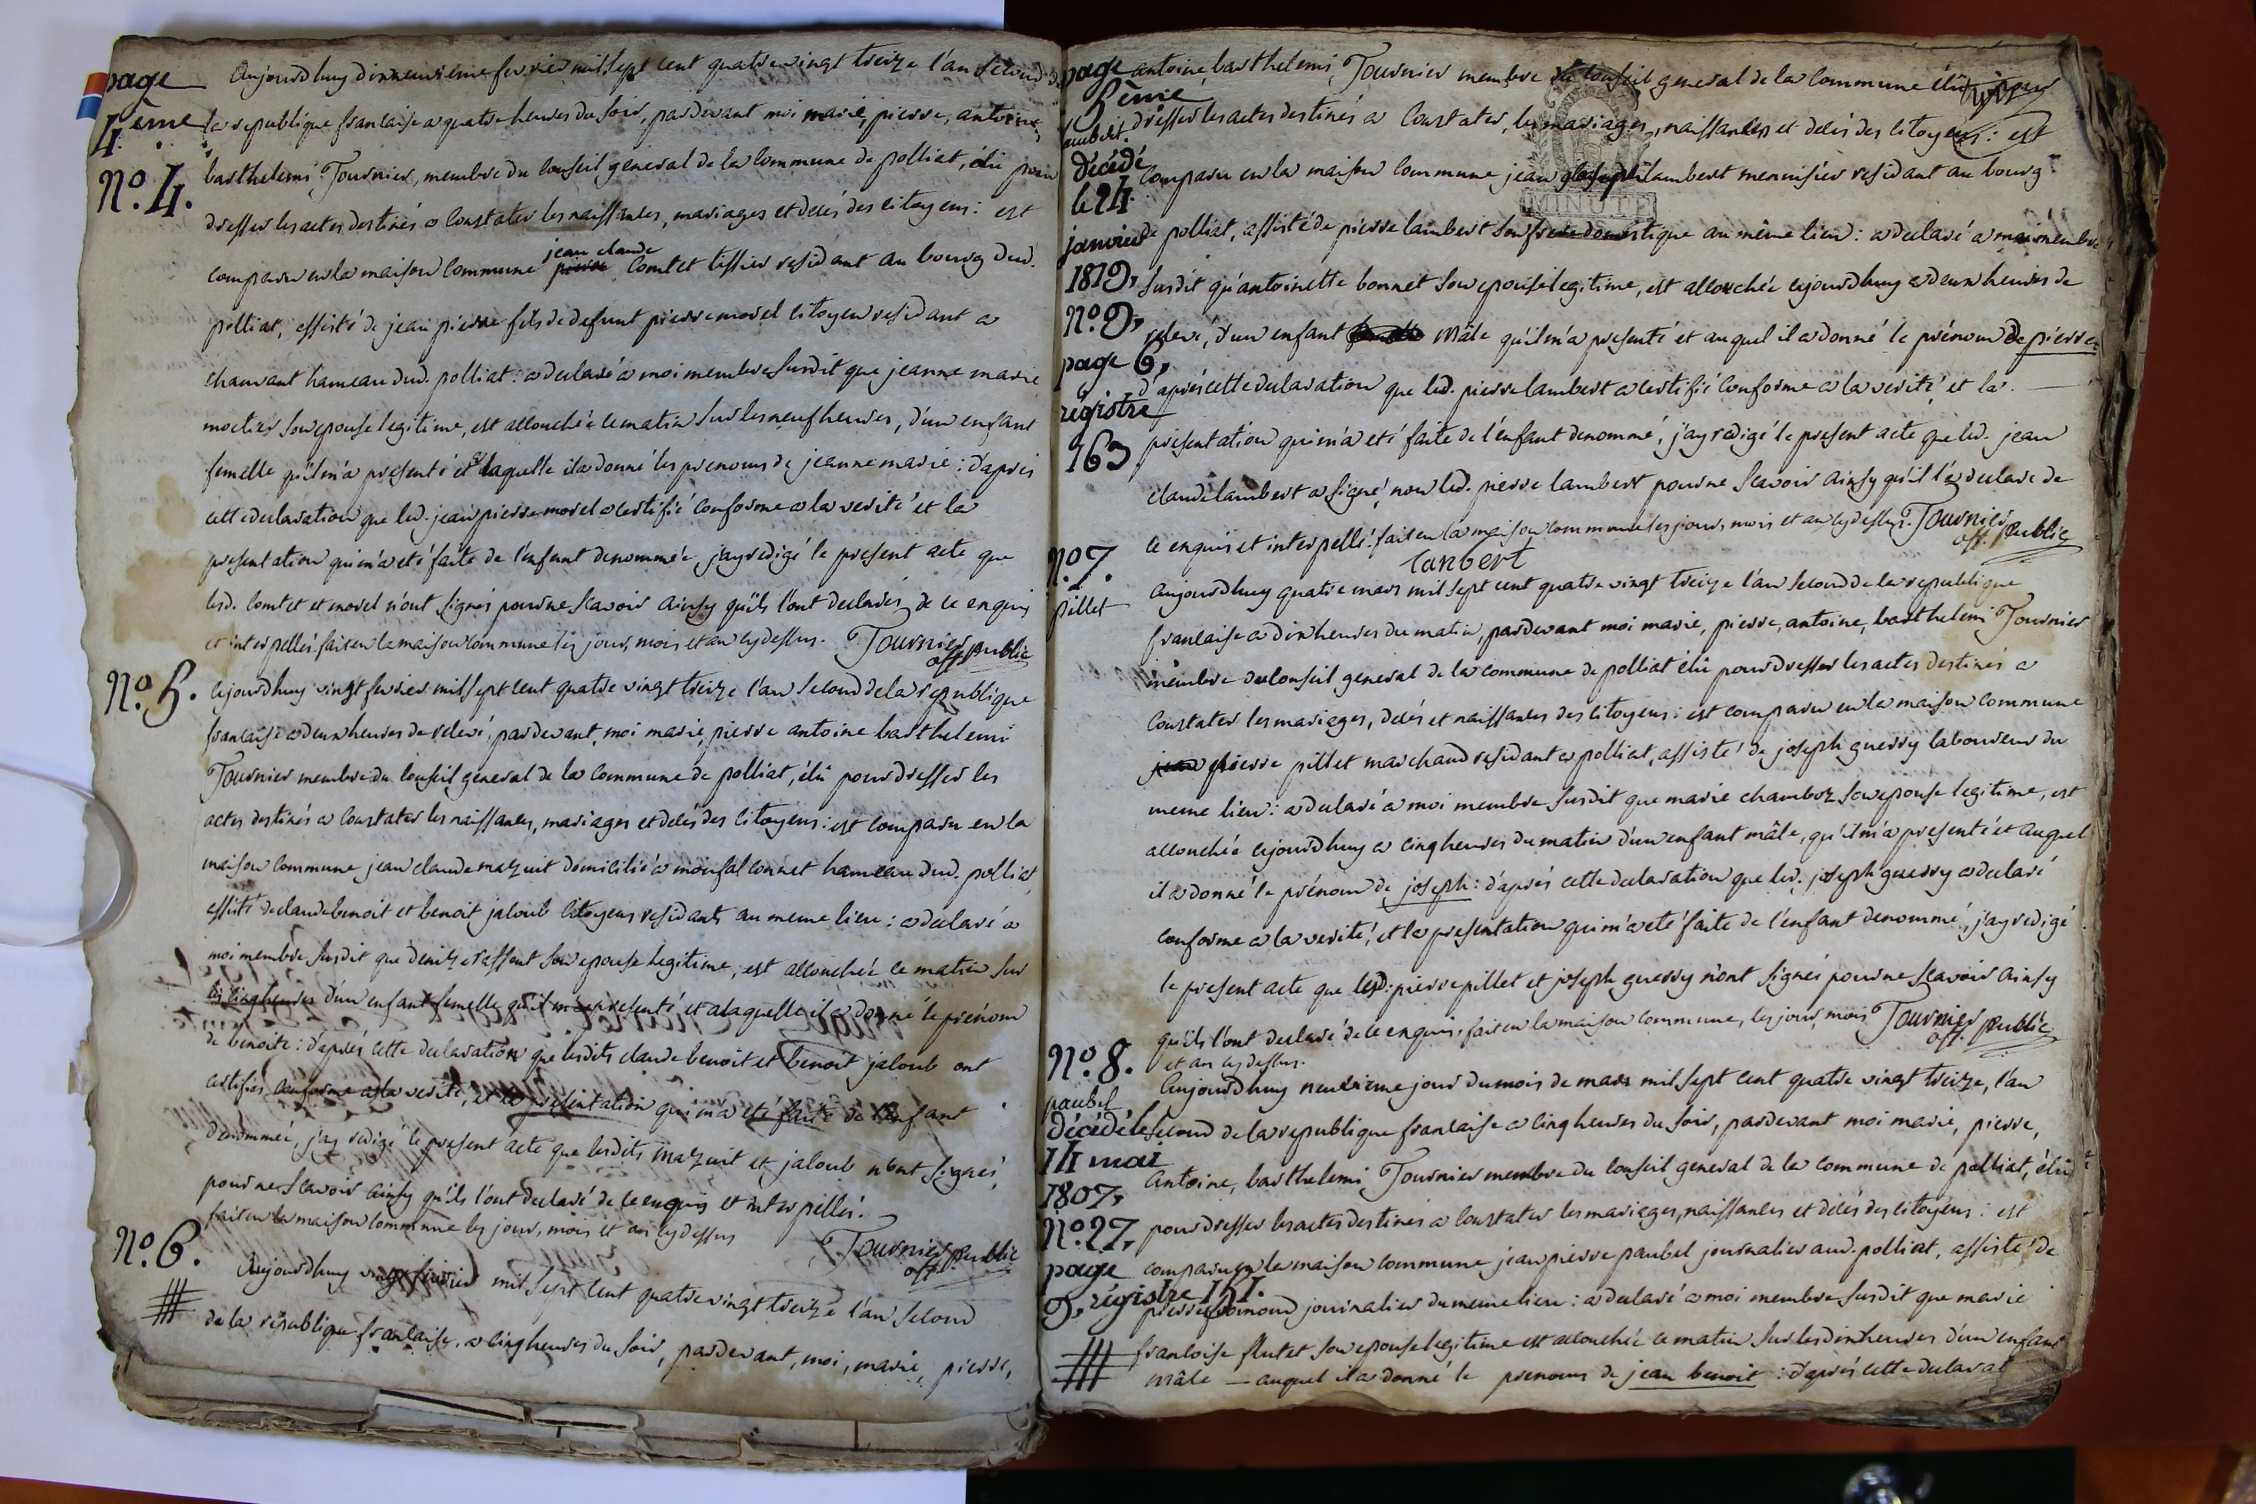 page
4ème
N.º 4.
Aujourdhuy dixneuvieme fevrier mil sept cent quatre vingt treize l'an second de
la republique francaise a quatre heures du soir, pardevant moi marie, pierre, antoine,
barthelemi Tournier, membre du conseil general de la commune de polliat, élû pour
dresser les actes destinés a constater les naissances, mariages et decés des citoyens : est
comparu en la maison commune pierre jean claude Comtet tissier residant au bourg dud.
polliat, assisté de jean pierre fils de defunt pierre morel citoyen residant a
chanvant hameau dud. polliat : a declaré a moi membre susdit que jeanne marie
moctier son epouse legitime, est accouchée ce matin sur les neuf heures, d'un enfant
femelle qu'il m'a presenté et a laquelle il a donné les prenoms de jeanne marie : d'après
cette declaration que led. jean pierre morel a certifié conforme a la verité et la
presentation qui m'a eté faite de l'enfant denommée, j'ay redigé le present acte que
lesd. Comtet et morel n'ont signés pour ne scavoir ainsy qu'ils l'ont declarés de ce enquis
et interpellés. fait en la maison commune les jour, mois et an cy dessus. Tournier
off. public
N.º 5.
Aujourdhuy vingt fevrier mil sept cent quatre vingt treize l'an second de la republique
francaise a deux heures de relevé, pardevant, moi marie, pierre antoine barthelemi
Tournier membre du conseil general de la commune de polliat, élû pour dresser les
actes destinés a constater les naissances, mariages et decés des citoyens : est comparu en la
maison commune jean claude mazuit domicilié a monfalconnet hameau dud. polliat,
assisté de claude benoit et benoit jaloub citoyens residants au meme lieu : a declaré a
moi membre susdit que denize son epouse legitime, est accouchée ce matin sur
les cinq heures d'un enfant femelle qu'il m'a presenté et a laquelle il a donné le prénom
de benoite : d'après cette declaration que lesdits claude benoit et benoit jaloub ont
certifiés conforme a la verité, et la presentation qui m'a eté faite de l'enfant
denommée, j'ay redigé le present acte que lesdits mazuit et jaloub n'ont signés,
pour ne scavoir ainsy qu'ils l'ont declaré de ce enquis et interpellés.
fait en la maison commune les jour, mois et an cy dessus
Tournier
off. public
N.º 6.
Aujourdhuy vingt fevrier mil sept cent quatre vingt treize l'an second
de la république francaise, a cinq heures du soir, pardevant, moi, marie, pierre,
page
5ème
lambert.
décédé
le 24
janvier
1819,
N.º 9,
page 6,
régistre
163
antoine barthelemi Tournier membre du conseil general de la commune élû pour
dresser les actes destinés a constater, les mariages, naissances et decés des citoyens : est
comparu en la maison commune jean lambert menuisier residant au bourg
MINUTE
de polliat, assisté de pierre lambert son frere domestique au même lieu : a declaré a moi membre
susdit qu'antoinette bonnet son epouse legitime, est accouchée ajourdhuy a deux heures de
relevé, d'un enfant mâle qu'il m'a presenté et auquel il a donné le prénom de pierre
d'après cette declaration que led. pierre lambert a certifié conforme a la verité, et la
presentation qui m'a eté faite de l'enfant denommé, j'ay redigé le present acte que led. jean
claude lambert a signé, non led. pierre lambert pour ne scavoir ainsy qu'il l'a declaré de
ce enquis et interpellé. fait en la maison commune les jour, mois et an cy dessus. Tournier
off. public
lanbert
N.º 7.
pillet
Aujourdhuy quatre mars mil sept cent quatre vingt treize l'an second de la republique
francaise a dix heures du matin, pardevant moi marie, pierre, antoine, barthelemi Tournier
mêmbre du conseil general de la commune de polliat élû pour dresser les actes destinés a
constater les mariages, decés et naissances des citoyens : est comparu en la maison commune
jean pierre pillet marchand residant a polliat, assisté de joseph guerry laboureur du
meme lieu : a declaré a moi membre susdit que marie chamboz son epouse legitime, est
accouchée ajourdhuy a cinq heures du matin d'un enfant mâle, qu'il m'a presenté et auquel
il a donné le prénom de joseph : d'après cette declaration que led. joseph guerry a declaré
conforme a la verité, et la presentation qui m'a eté faite de l'enfant denommé, j'ay redigé
le present acte que lesd. pierre pillet et joseph guerry n'ont signés pour ne scavoir ainsy
qu'ils l'ont declaré de ce enquis, fait en la maison commune, les jour, mois Tournier
et an cy dessus. off. public
N.º 8.
paubel
décédé le
14 mai
1807,
N.º 27,
page
9, régistre 151.
Aujourdhuy neuvieme jour du mois de mars mil sept cent quatre vingt treize, l'an
second de la republique francaise a cinq heures du soir, pardevant moi marie, pierre,
Antoine, barthelemi Tournier membre du conseil general de la commune de polliat, élû
pour dresser les actes destinés a constater les mariages, naissances et décés des citoyens : est
comparu en la maison commune jean pierre paubel journalier aud. polliat, assisté de
pierre journalier du meme lieu : a declaré a moi membre susdit que marie
francoise flutet son epouse legitime est accouchée ce matin sur les dix heures d'un enfant
mâle — auquel il a donné le prenoms de jean benoit : d'après cette declarat